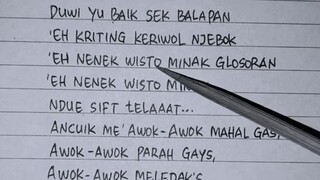 DUWI YU BAIK SEK BALAPAN
'EH KRITING KERIWOL NJEBOK
'EH NENEK WISTO MINAK GLOSORAN
'EH NENEK WISTO
NDUE SIFT TELAAAT...
ANCUIK ME' AWOK-AWOK MAHAL GAS,
AWOK-AWOK PARAH GAYS,
AWOK-AWOK MELEDAK'S